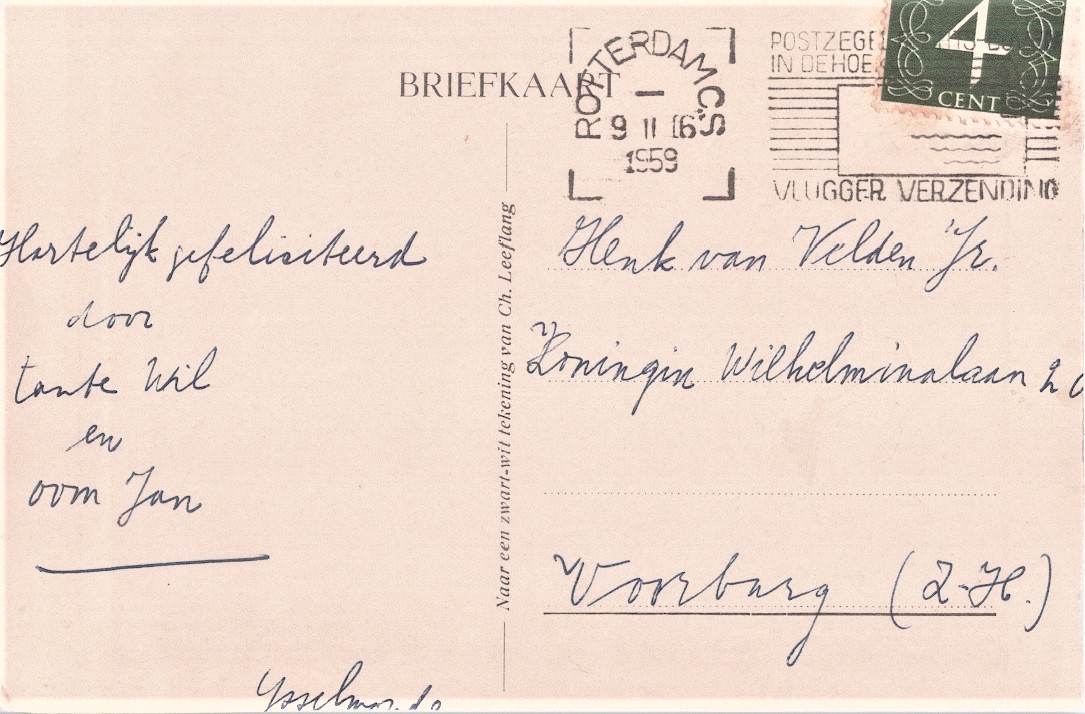 BRIEFKAART
ROTTERDAM C.S
9 II 16
1959
POSTZEGE
IN DE HOE
VLUGGER VERZENDING
4
CENT
Hartelijk gefeliciteerd
door
tante Wil
en
oom Jan
Naar een zwart-wit tekening van Ch. Leeflang
Henk van Velden Jr.
Koningin Wilhelminalaan
Voorburg (Z-H.)